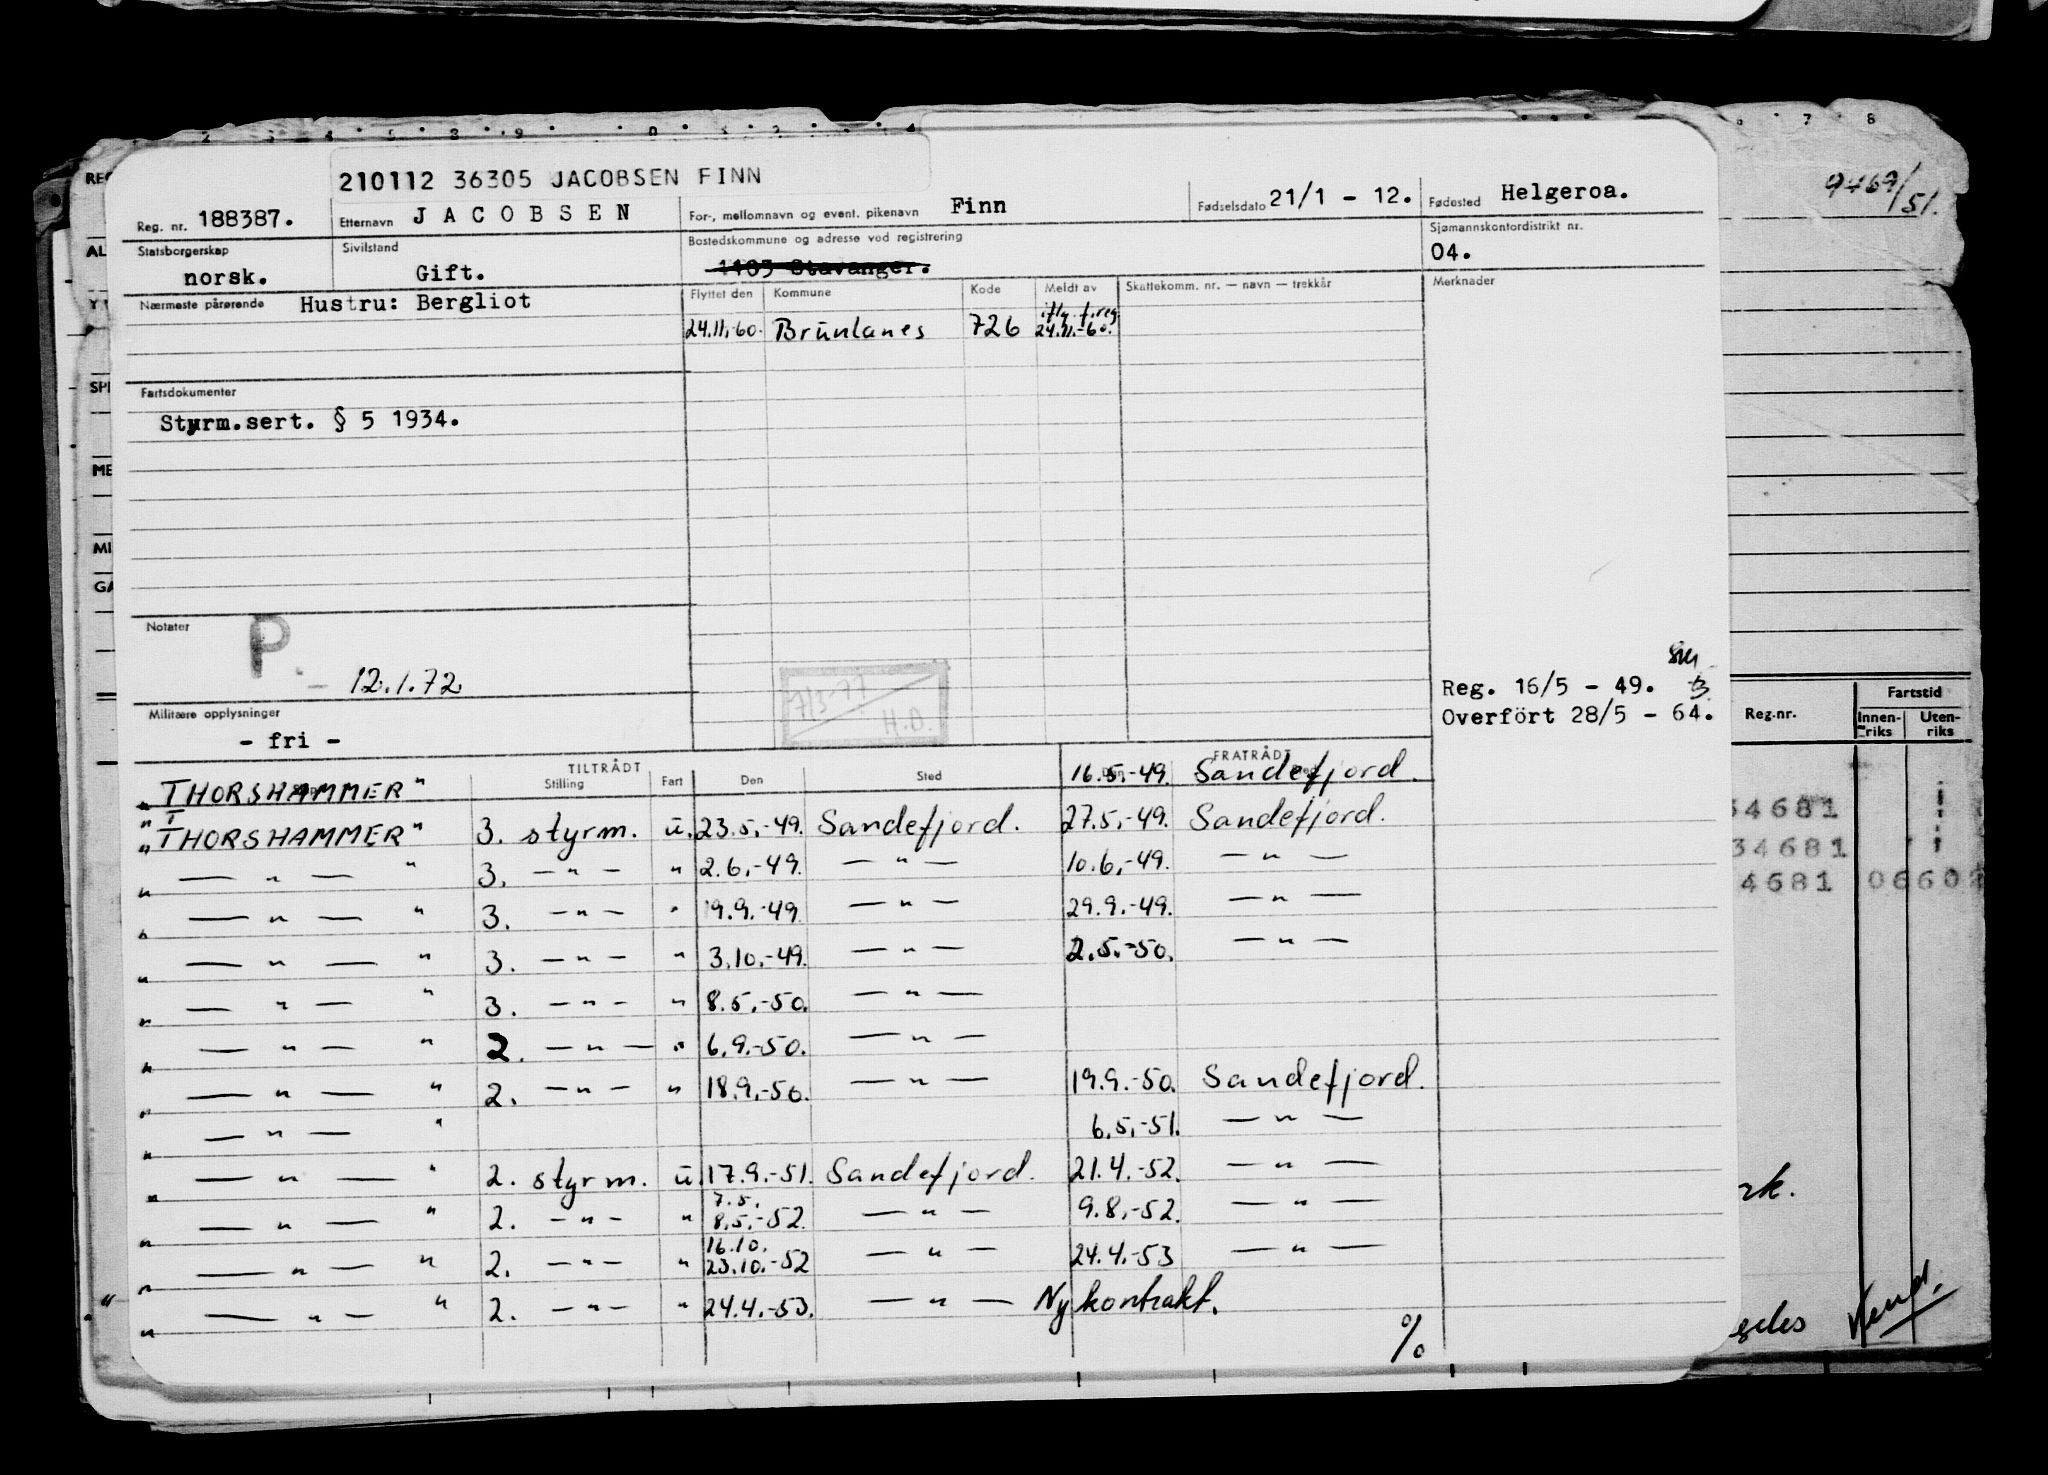 9469/51.
210112 36305 JACOBSEN FINN
Reg. nr. 188387. Etternavn JACOBSEN For-, mellomnavn og event. pikenavn Finn Fødselsdato 21/1 - 12. Fødested Helgeroa.
Statsborgerskap norsk. Sivilstand Gift. Bostedskommune og adresse ved registrering 1103 Stavanger. Sjømannskontordistrikt nr. 04.
Nærmeste pårørende Hustru: Bergliot Flyttet den Kommune Kode Meldt av Skattekomm. nr. — navn — trekkår Merknader
24.11.-60. Brunlanes 726 iflg. f.reg 24.11.-60.
Fartsdokumenter
Styrm.sert. § 5 1934.
Notater P
12.1.72
7/3-77 H.D.
Reg. 16/5 - 49.
Overfört 28/5 - 64.
Militære opplysninger
- fri -
Reg.nr. Fartstid
Innen-riks Uten-riks
TILTRÅDT FRATRÅDT
Stilling Fart Den Sted
"THORSHAMMER" 16.5.-49. Sandefjord.
"THORSHAMMER" 3. styrm. u. 23.5.-49. Sandefjord. 27.5.-49. Sandefjord.
" — " — " 3. — " — " 2.6.-49. — " — 10.6.-49. — " —
" — " — " 3. — " — " 19.9.-49. — " — 29.9.-49. — " —
" — " — " 3. — " — " 3.10.-49. — " — 2.5.-50. — " —
" — " — " 3. — " — " 8.5.-50. — " —
" — " — " 2. — " — " 6.9.-50. — " —
" — " — " 2. — " — " 18.9.-50. — " — 19.9.-50. Sandefjord.
" — " — " 6.5.-51. — " —
" — " — " 2. styrm. u. 17.9.-51. Sandefjord. 21.4.-52. — " —
" — " — " 2. — " — " 7.5. 8.5.-52. — " — 9.8.-52. — " —
" — " — " 2. — " — " 16.10. 23.10.-52 — " — 24.4.-53 — " —
" — " — " 2. — " — " 24.4.-53. — " — Ny kontrakt.
%
34681
34681
4681 0660